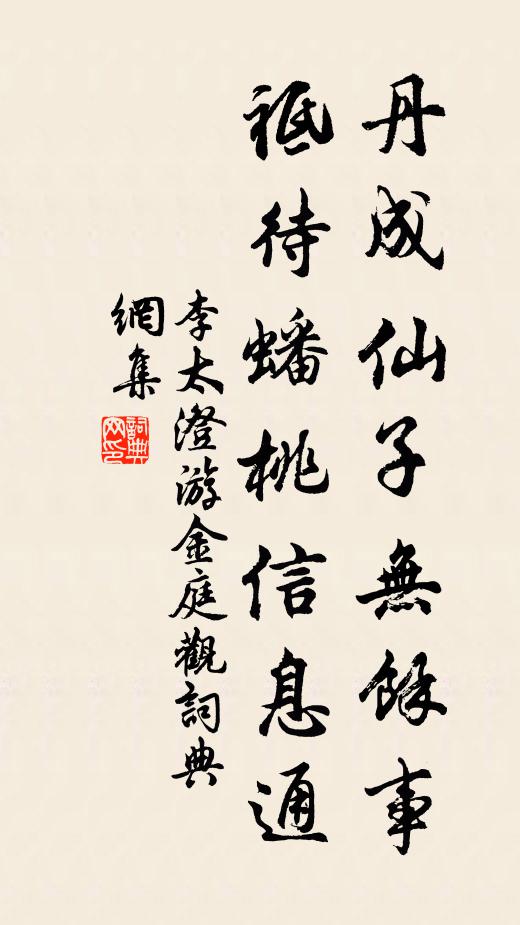 丹成仙子無餘事
祗待蟠桃信息通
李太澄游金庭觀詞典
網集
詞典
网印